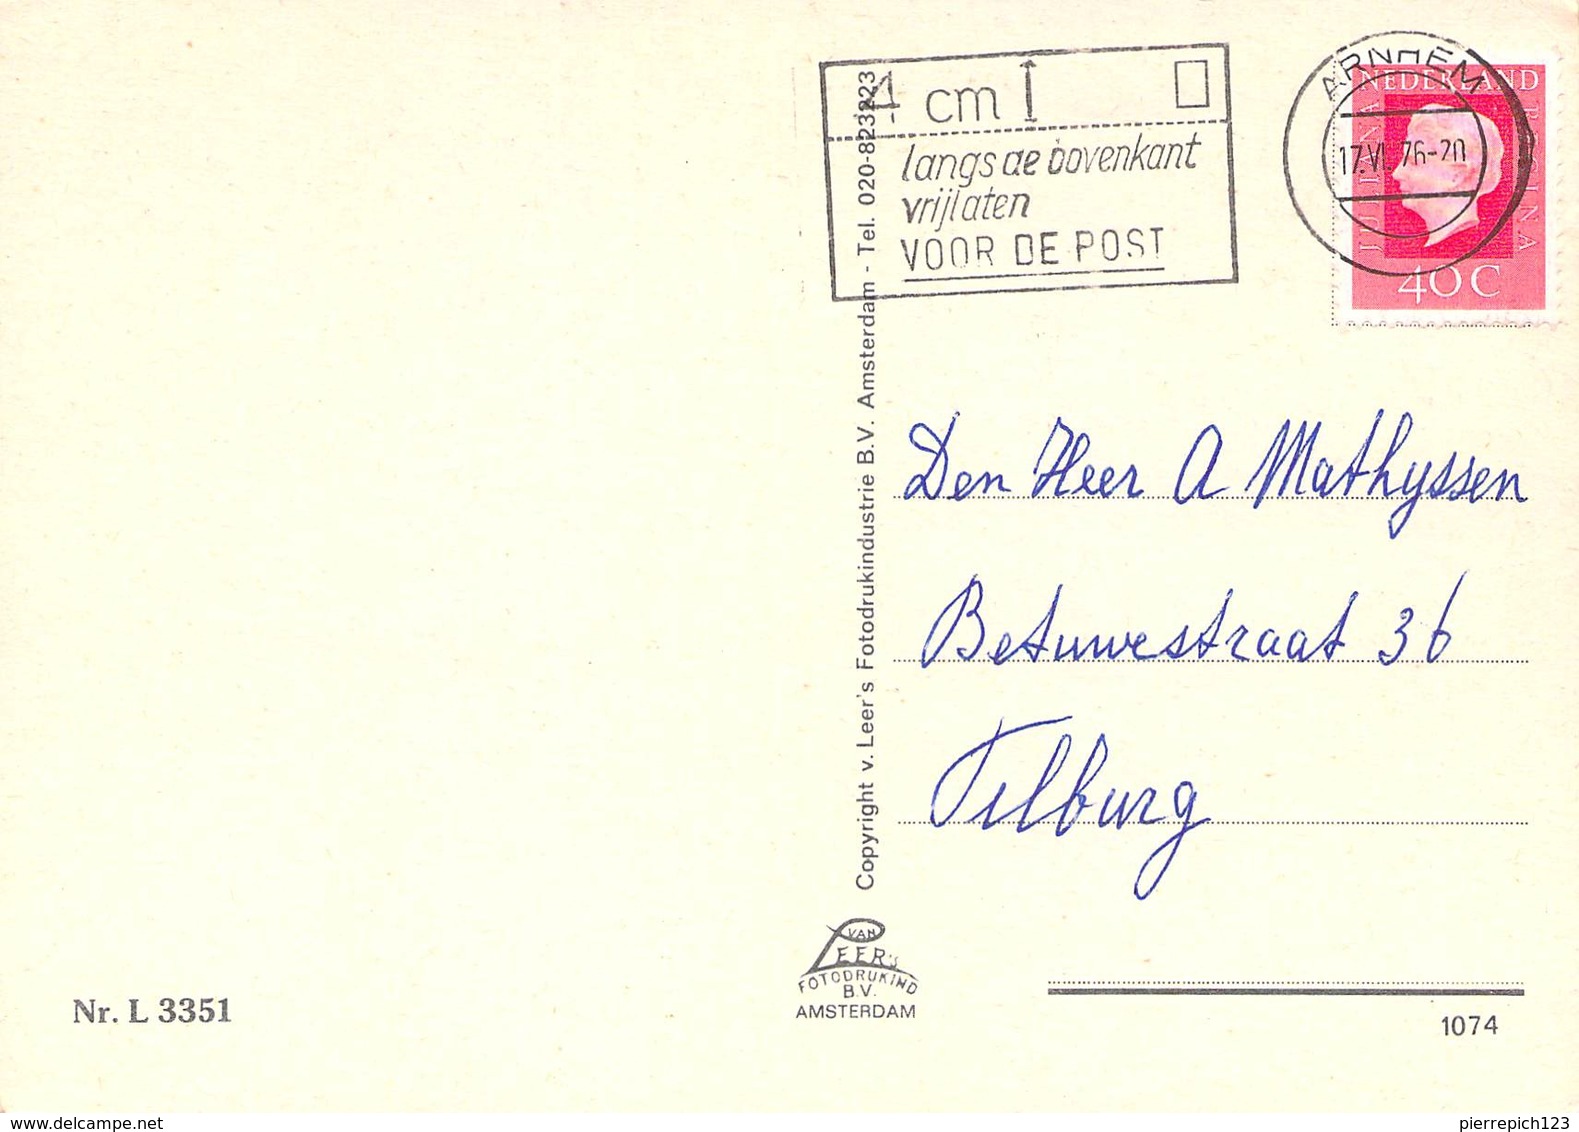 4 cm
langs de bovenkant
vrijlaten
VOOR DE POST
ARNHEM
17.VI.76-20
NEDERLAND
JULIANA
REGINA
40C
Copyright v. Leer's Fotodrukindustrie B.V. Amsterdam - Tel. 020-823223
Den Heer A Mathyssen
Betuwestraat 36
Tilburg
VAN
LEER's
FOTODRUKIND
B.V.
AMSTERDAM
Nr. L 3351
1074
www.delcampe.net
pierrepich123